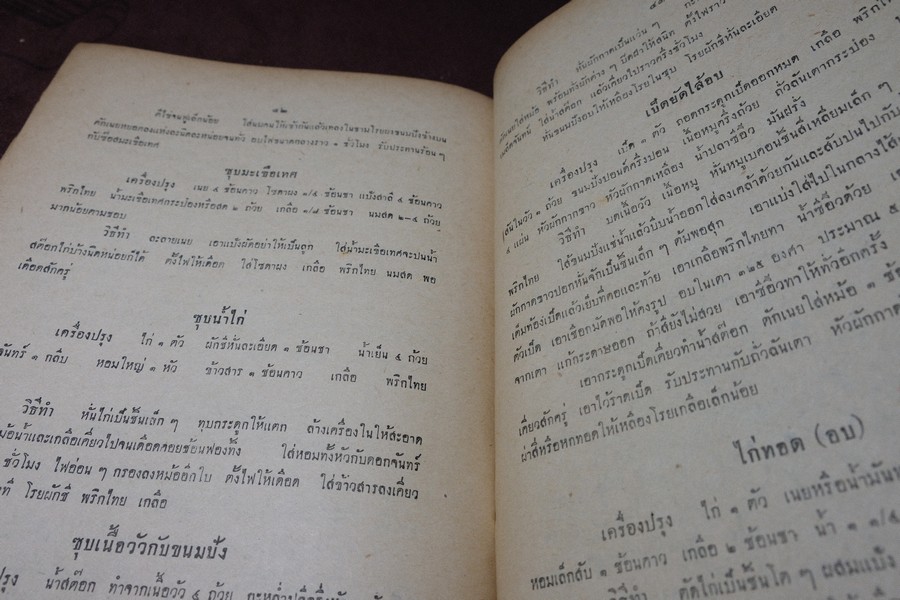 ๔๒
ตีไข่จนฟูเล็กน้อย ใส่นมคนให้เข้ากันแล้วเทลงในชามโรยเศษขนมปังข้างบน
ตักเนยหยอดลงแห่งละนิดละหน่อยจนทั่ว อบไฟขนาดกลางราว ๑ ชั่วโมง รับประทานร้อน ๆ
กับซ๊อสมะเขือเทศ
ซุบมะเขือเทศ
เครื่องปรุง เนย ๔ ช้อนคาว โซดาผง ๑/๔ ช้อนชา แป้งสาลี ๔ ช้อนคาว
พริกไทย น้ำมะเขือเทศกระป๋องหรือสด ๒ ถ้วย เกลือ ๑/๘ ช้อนชา นมสด ๒-๔ ถ้วย
มากน้อยตามชอบ
วิธีทำ ละลายเนย เอาแป้งผัดอย่าให้เป็นลูก ใส่น้ำมะเขือเทศจะปนน้ำ
สต๊อกไก่บ้างนิดหน่อยก็ได้ ตั้งไฟให้เดือด ใส่โซดาผง เกลือ พริกไทย นมสด พอ
เดือดสักครู่
ซุบน้ำไก่
เครื่องปรุง ไก่ ๑ ตัว ผักชีหั่นละเอียด ๑ ช้อนชา น้ำเย็น ๔ ถ้วย
จันทร์ ๑ กลีบ หอมใหญ่ ๑ หัว ข้าวสาร ๑ ช้อนคาว เกลือ พริกไทย
วิธีทำ หั่นไก่เป็นชิ้นเล็ก ๆ ทุบกระดูกให้แตก ล้างเครื่องในให้สะอาด
น้ำและเกลือเคี่ยวไปจนเดือดคอยช้อนฟองทิ้ง ใส่หอมทั้งหัวกับดอกจันทร์
ชั่วโมง ไฟอ่อน ๆ กรองลงหม้ออีกใบ ตั้งไฟให้เดือด ใส่ข้าวสารลงเคี่ยว
โรยผักชี พริกไทย เกลือ
ซุบเนื้อวัวกับขนมปัง
น้ำสต๊อก ทำจากเนื้อวัว ๔ ถ้วย
วิธีทำ หั่นผักกาดเป็นแว่น ๆ
พร้อมทั้งผักต่าง ๆ ปิดฝาให้สนิท ตั้งไฟราว
ใส่น้ำสต๊อก แล้วเคี่ยวไปราวครึ่งชั่วโมง
หั่นขนมปังอบให้เหลืองโรยในซุบ โรยผักชีหั่นละเอียด
เป็ดยัดไส้อบ
เครื่องปรุง เป็ด ๑ ตัว ถอดกระดูกเป็ดออกหมด เกลือ
๑ ถ้วย ขนมปังปอนด์ครึ่งปอน เนื้อหมูครึ่งถ้วย ถั่วลันเตากระป๋อง
หัวผักกาดขาว หัวผักกาดเหลือง น้ำปลาซีอิ๊ว มันฝรั่ง
วิธีทำ บดเนื้อวัว เนื้อหมู หั่นหมูเบคอนชิ้นสี่เหลี่ยมเล็ก ๆ
พริกไทย ใส่ขนมปังแช่น้ำแล้วบีบน้ำออกใส่ลงเคล้าด้วยกันและสับปนไปกับ
ผักกาดขาวปอกหั่นจักเป็นชิ้นเล็ก ๆ ต้มพอสุก เอาแบ่งใส่ไปในกลางไส้
เต็มท้องเป็ดแล้วเย็บที่คอและท้าย เอาเกลือพริกไทยทา น้ำซีอิ๊วด้วย
ตัวเป็ด เอาเชือกมัดพอให้คงรูป อบในเตา ๓๒๕ องศา ประมาณ ๕
จากเตา แก้กระดาษออก ถ้าสียังไม่สวย เอาซีอิ๊วทาให้ทั่วอีกครั้ง
เอากระดูกเป็ดเคี่ยวทำน้ำสต๊อก ตักเนยใส่หม้อ ๑
เคี่ยวสักครู่ เอาไว้ราดเป็ด รับประทานกับถั่วลันเตา หัวผักกาด
ผ่าสี่หรือหกทอดให้เหลืองโรยเกลือเล็กน้อย
ไก่ทอด (อบ)
เครื่องปรุง ไก่ ๑ ตัว เนยหรือน้ำมัน
หอมเล็กสับ ๑ ช้อนคาว เกลือ ๒ ช้อนชา น้ำ ๑ ๑/๔
วิธีทำ ตัดไก่เป็นชิ้นโต ๆ ผสมแป้ง